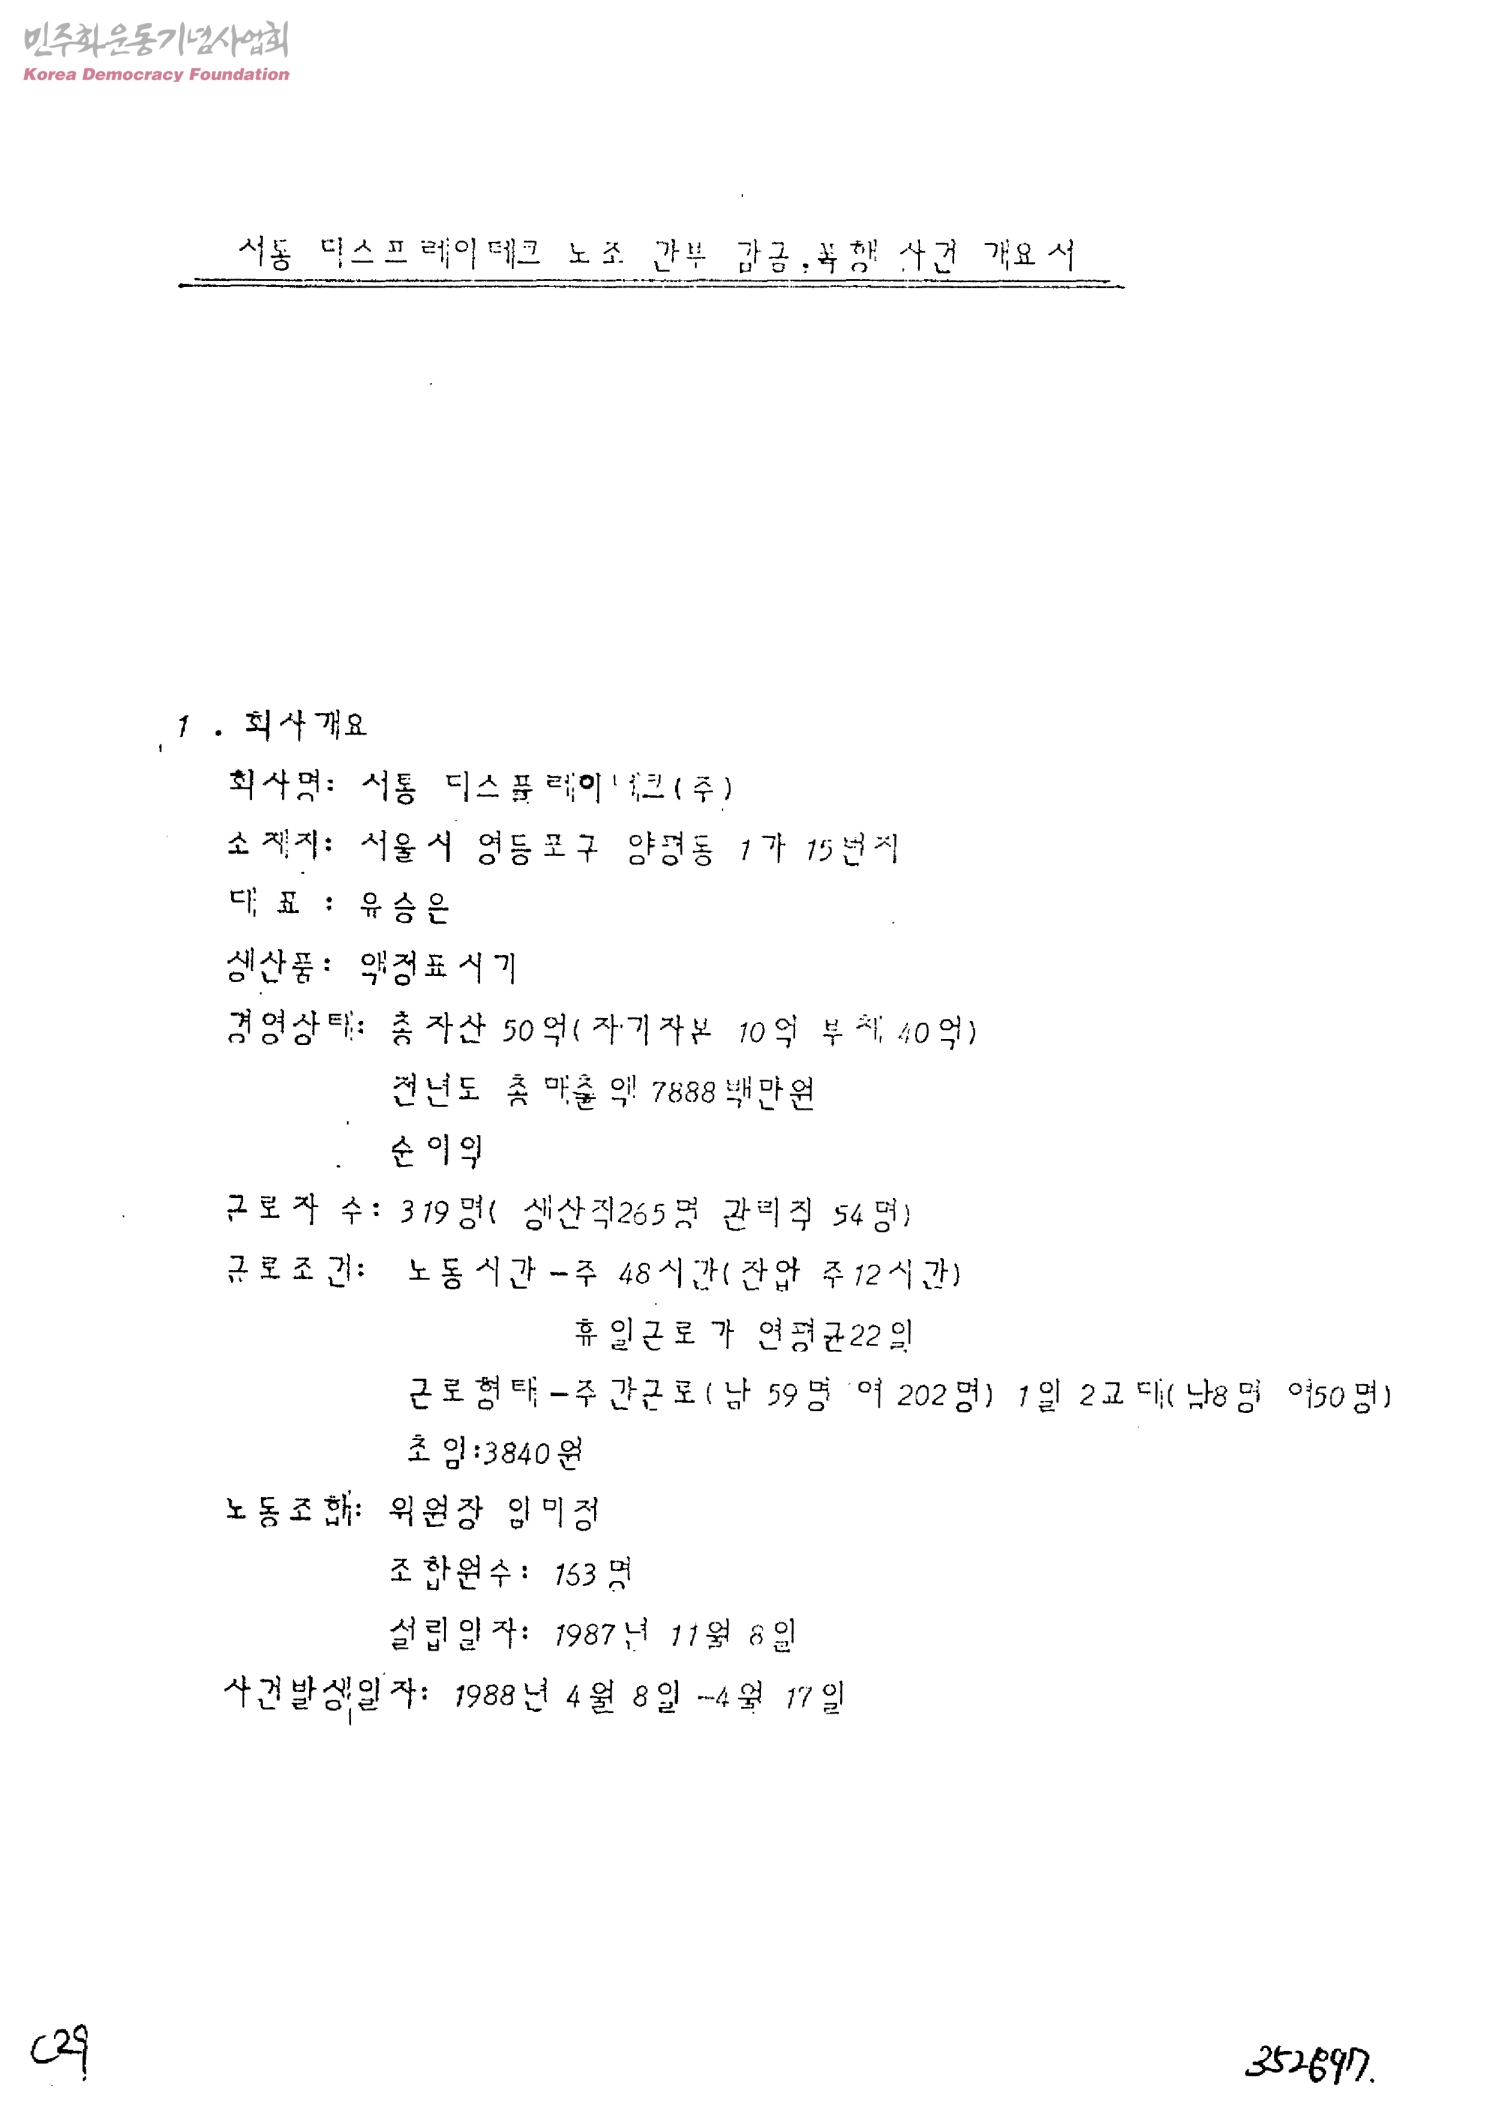 민주화운동기념사업회
Korea Democracy Foundation
서통 디스프레이테크 노조 간부 감금.폭행 사건 개요서
1 . 회사개요
회사명: 서통 디스플레이테크(주)
소재지: 서울시 영등포구 양평동 1가 15번지
대 표 : 유승은
생산품: 액정표시기
경영상태: 총자산 50억(자기자본 10억 부채 40억)
전년도 총매출액 7888백만원
순이익
근로자 수: 319명( 생산직265명 관리직 54명)
근로조건: 노동시간-주 48시간(잔업 주12시간)
휴일근로가 연평균22일
근로형태-주간근로(남 59명 여 202명) 1일 2교대(남8명 여50명)
초임:3840원
노동조합: 위원장 임미정
조합원수: 163명
설립일자: 1987년 11월 8일
사건발생일자: 1988년 4월 8일 -4월 17일
C29
352697.